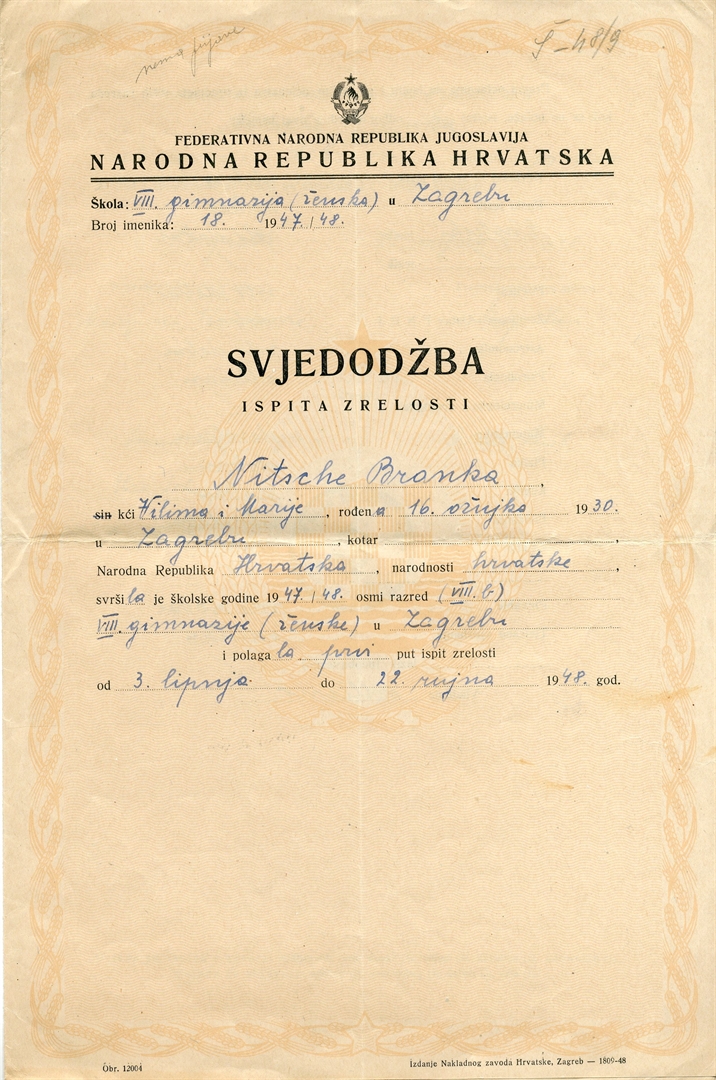 nema prijave
Š-48/9
FEDERATIVNA NARODNA REPUBLIKA JUGOSLAVIJA
NARODNA REPUBLIKA HRVATSKA
Škola: VIII. gimnazija (ženska) u Zagrebu
Broj imenika: 18. 1947./48.
SVJEDODŽBA
ISPITA ZRELOSTI
Nitsche Branka,
sin kći Vilima i Marije, rođena 16. ožujka 1930.
u Zagrebu, kotar ,
Narodna Republika Hrvatska, narodnosti hrvatske,
svršila je školske godine 1947./48. osmi razred (VIII. b)
VIII. gimnazije (ženske) u Zagrebu
i polagala prvi put ispit zrelosti
od 3. lipnja do 22. rujna 1948. god.
Obr. 12004
Izdanje Nakladnog zavoda Hrvatske, Zagreb — 1809-48